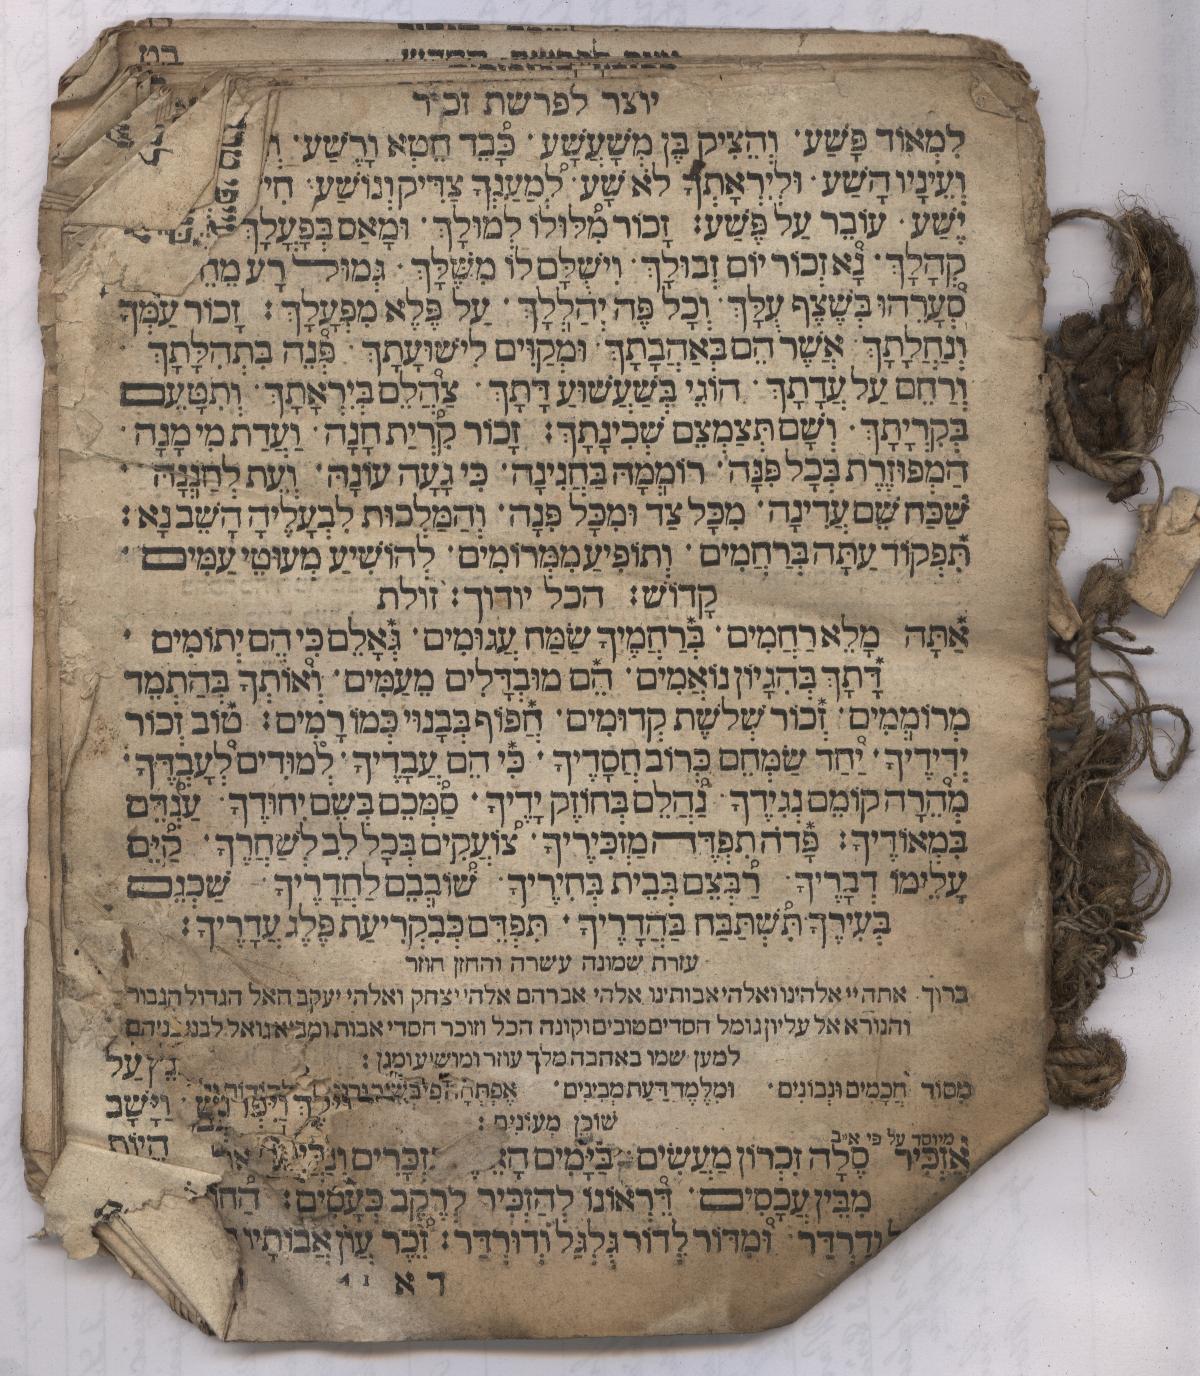 יוצר לפרשת זכור
לִמְאוֹד פָּשַׁע· וְהֵצִיק בֶּן מְשָׁעֲשָׁע· כָּבֵד חֵטְא וָרֶשַׁע·
וְעֵינָיו הָשַׁע· וּלְיִרְאָתְךָ לֹא שָׁע· לְמַעַנְךָ צַדִּיק וְנוֹשַׁע·
יֶשַׁע· עוֹבֵר עַל פֶּשַׁע: זָכוֹר מִלּוּלוֹ לְמוּלָךְ· וּמָאַס בְּפָעֳלָךְ
קְהָלָךְ· נָא זְכוֹר יוֹם זְבוּלָךְ· וִישֻׁלַּם לוֹ מִשֶּׁלָּךְ· גְּמוּל רָע
סְעָרֵהוּ בְּשֶׁצֶף עֻלָּךְ· וְכָל פֶּה יְהַלְלָךְ· עַל פֶּלֶא מִפְעָלָךְ: זָכוֹר עַמְּךָ
וְנַחֲלָתָךְ· אֲשֶׁר הֵם בְּאַהֲבָתָךְ· וּמְקַוִּים לִישׁוּעָתָךְ· פְּנֵה בִּתְהִלָּתָךְ
וְרַחֵם עַל עֲדָתָךְ· הוֹגֵי בְּשַׁעֲשׁוּעַ דָּתָךְ· צַהֲלֵם בְּיִרְאָתָךְ· וְתִטָּעֵם
בְּקִרְיָתָךְ· וְשָׁם תְּצַמְצֵם שְׁכִינָתָךְ: זָכוֹר קִרְיַת חָנָה· וַעֲדַת מִי מָנָה·
הַמְפוּזֶּרֶת בְּכָל פִּנָּה· רוֹמְמָהּ בַּחֲנִינָה· כִּי גָעָה עוֹנָהּ· וְעֵת לְחֶנְנָהּ·
שִׁכַּח שֵׁם עֲדִינָה· מִכָּל צַד וּמִכָּל פִּנָה· וְהַמַּלְכוּת לִבְעָלֶיהָ הָשֵׁב נָא:
תִּפְקוֹד עַתָּה בְּרַחֲמִים· וְתוֹפִיעַ מִמְּרוֹמִים· לְהוֹשִׁיעַ מְעוּטֵי עַמִּים
קָדוֹשׁ: הכל יודוך: זולת
אַתָּה מָלֵא רַחֲמִים· בְּרַחֲמֶיךָ שַׂמַּח עֲגוּמִים· גְּאָלֵם כִּי הֵם יְתוֹמִים·
דָּתְךָ בְּהִגָּיוֹן נוֹאֲמִים· הֵם מוּבְדָּלִים מֵעַמִּים· וְאוֹתְךָ בְּהַתְמֵד
מְרוֹמְמִים· זְכוֹר שְׁלֹשֶׁת קְדוּמִים· חֲפוֹף בְּבָנוּי כְּמוֹ רָמִים: טוֹב זְכוֹר
יְדִידֶיךָ· יַחַד שַׂמְּחֵם כְּרוֹב חֲסָדֶיךָ· כִּי הֵם עֲבָדֶיךָ· לְמוּדִים לְעָבְדֶּךָ·
מְהֵרָה קוֹמֵם נְגִידֶךָ· נַהֲלֵם בְּחוֹזֶק יָדֶיךָ· סַמְּכֵם בְּשֵׁם יִחוּדֶךָ· עָנְדֵם
בִּמְאוֹדֶיךָ: פָּדֹה תִפְדֶּה מַזְכִּירֶיךָ· צוֹעֲקִים בְּכָל לֵב לְשַׁחֲרֶךָ· קַיֵּם
עָלֵימוֹ דְבָרֶיךָ· רַבְּצֵם בְּבֵית בְּחִירֶיךָ· שׁוֹבְבֵם לַחֲדָרֶיךָ· שַׁכְּנֵם
בְּעִירֶךָ תִּשְׁתַּבַּח בַּהֲדָרֶיךָ· תִּפְדֵּם כְּבִקְרִיעַת פֶּלֶג עֲדָרֶיךָ:
עזרת שמונה עשרה והחזן חוזר
ברוך אתה יי אלהינו ואלהי אבותינו אלהי אברהם אלהי יצחק ואלהי יעקב האל הגדול הגבור
והנורא אל עליון גומל חסדים טובים וקונה הכל וזוכר חסדי אבות ומביא גואל לבני בניהם
למען שמו באהבה מלך עוזר ומושיע ומגן:
מִסּוֹד חֲכָמִים וּנְבוֹנִים· וּמִלֶּמֶד דַּעַת מְבִינִים· אֶפְתְּחָה פִּי
שׁוֹכֵן מְעוֹנִים:
מיוסד על פי א״ב
אַזְכִּיר סֶלָה זִכְרוֹן מַעֲשִׂים· בַּיָּמִים נִזְכָּרִים
מִבֵּין עֲכָסִים· דְּרָאוֹנוֹ לְהַזְכִּיר לְרֶקֶב כְּעָסִים:
וְדַרְדַּר· וּמִדּוֹר לְדוֹר גִּלְגַּל וְדוּרְדַּר: זֵכֶר עֲוֹן אֲבוֹתָיו
ד א